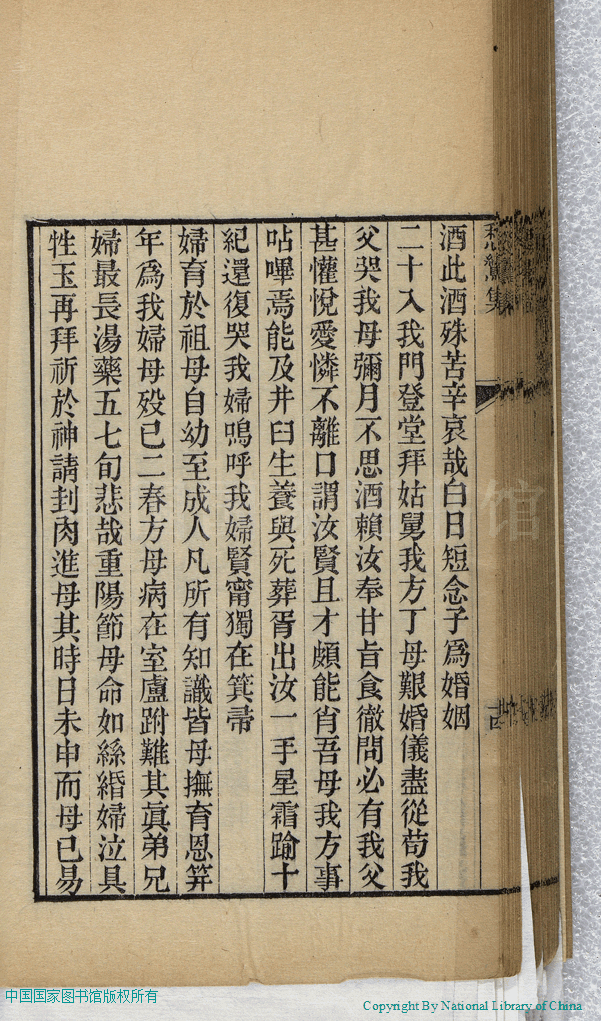 集
酒此酒殊苦辛哀哉白日短念子為婚姻
二十入我門登堂拜姑舅我方丁母艱婚儀盡從苟我
父哭我母彌月不思酒賴汝奉甘旨食徹問必有我父
甚懽悅愛憐不離口謂汝賢且才頗能肖吾母我方事
呫嗶焉能及井臼生養與死葬胥出汝一手星霜踰十
紀還復哭我婦嗚呼我婦賢甯獨在箕帚
婦育於祖母自幼至成人凡所有知識皆母撫育恩筓
年為我婦母歿已二春方母病在室廬跗難其眞弟兄
婦最長湯藥五七旬悲哉重陽節母命如絲緡婦泣具
牲玉再拜祈於神請刲肉進母其時日未申而母已易
中国国家图书馆版权所有
Copyright By National Library of China
馆